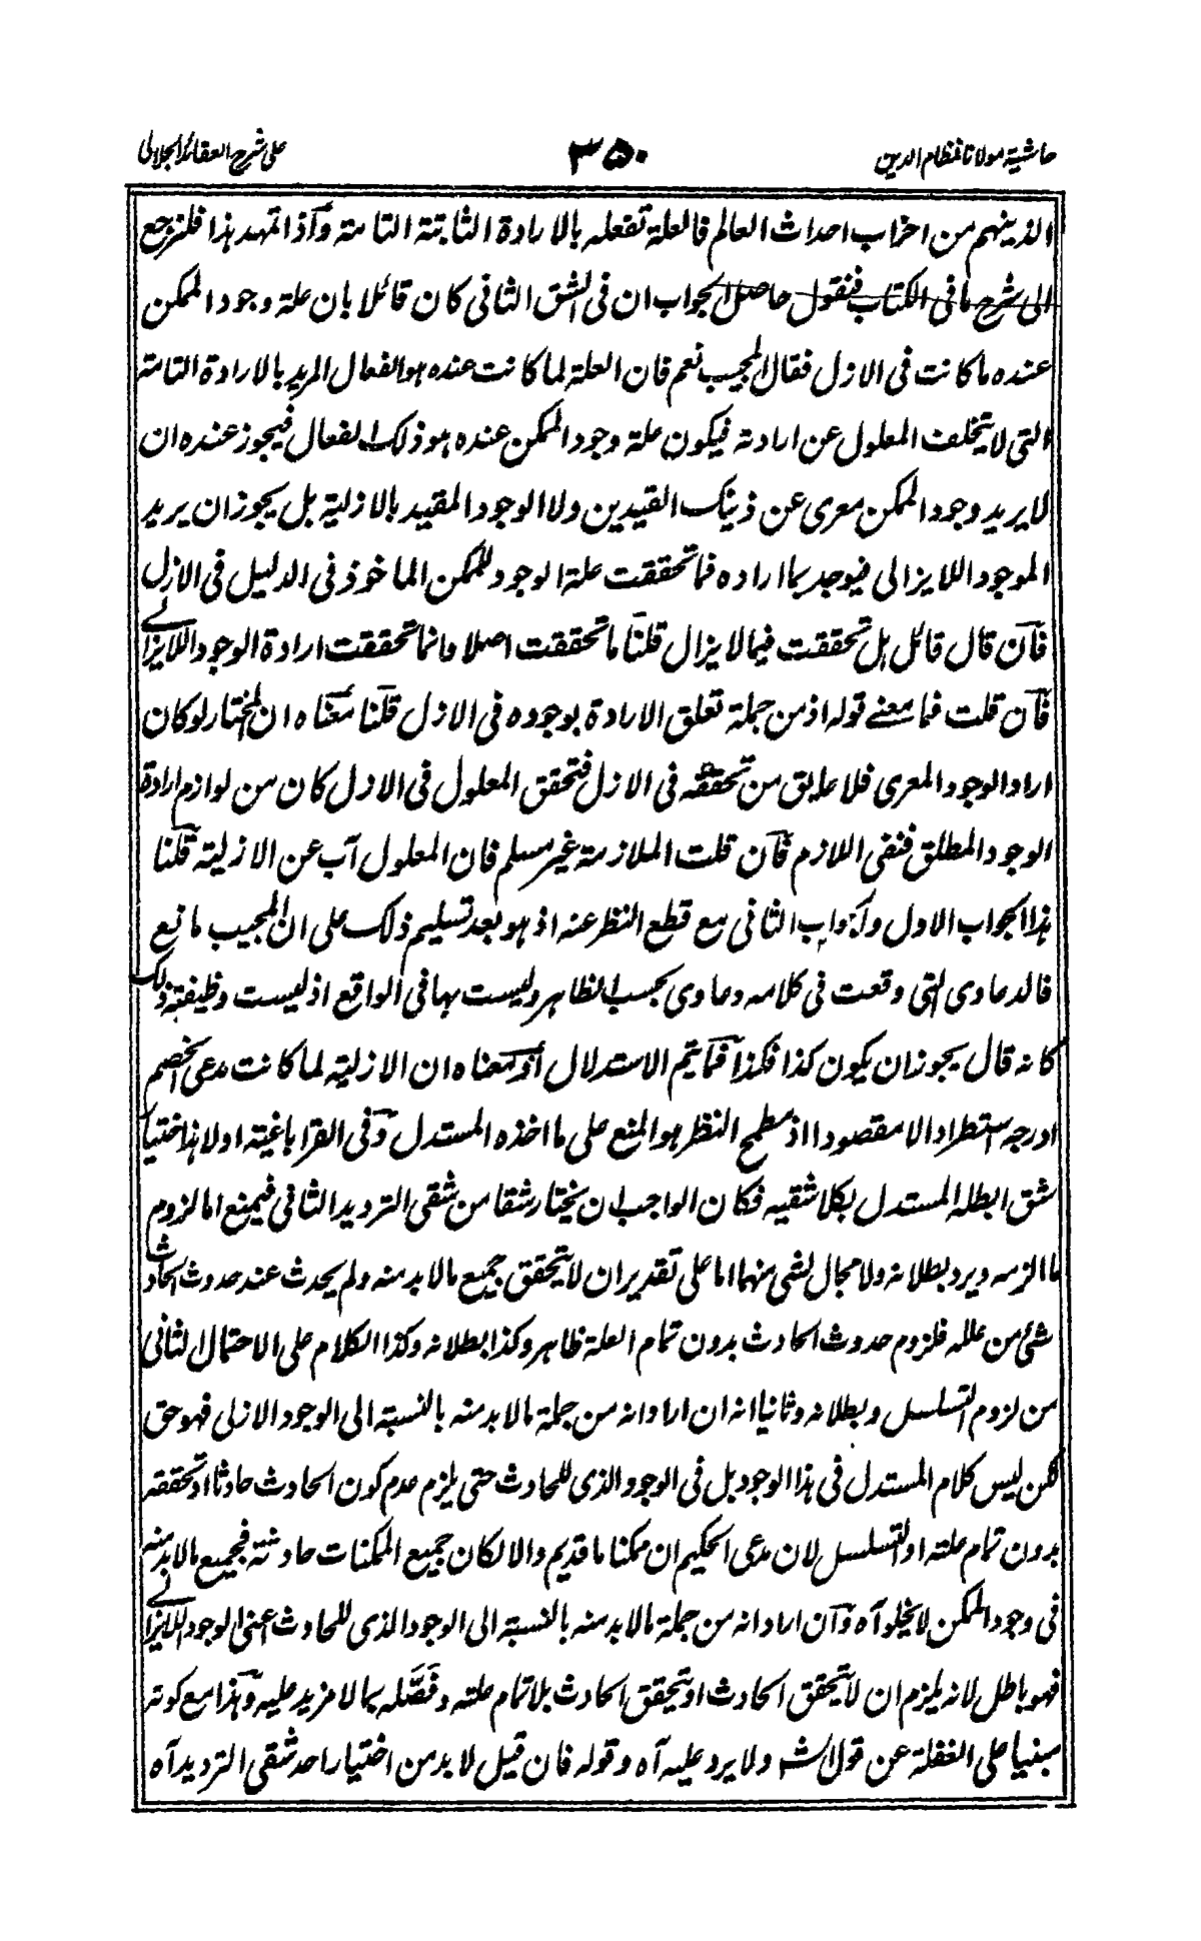 حاشية مولانا نظام الدين
٣٥٠
على شرح العقائد الجلالى
الذى ينهم من اخراب احداث العالم فالعلة تفعله بالارادة الثابتة التامة وآذا تمهد هذا فلنرجع
الى شرح ما فى الكتاب فنقول حاصل الجواب ان فى الشق الثانى كان قائلا بان علة وجود الممكن
عنده ما كانت فى الازل فقال المجيب نعم فان العلة لما كانت عنده هو الفعال المريد بالارادة التامة
التى لا يتخلف المعلول عن ارادته فيكون علة وجود الممكن عنده هو ذلك الفعال فيجوز عنده ان
لا يريد وجود الممكن معرى عن ذينك القيدين ولا الوجود المقيد بالازلية بل يجوز ان يريد
الموجود اللايزالى فيوجد بما اراده فما تحققت علة الوجود للممكن الماخوذ فى الدليل فى الازل
فآن قال قائل هل تحققت فيما لا يزال قلنا ما تحققت اصلا وانما تحققت ارادة الوجود اللايزالى
فآن قلت فما معنے قوله اذ من جملة تعلق الارادة بوجوده فى الازل قلنا معناه ان المختار لو كان
اراد الوجود المعرى فلا عايق من تحققه فى الازل فتحقق المعلول فى الازل كان من لوازم ارادة
الوجود المطلق فنفى اللازم فآن قلت الملازمة غير مسلم فان المعلول آب عن الازلية قلنا
هذا الجواب الاول والجواب الثانى مع قطع النظر عنه اذ هو بعد تسليم ذلك على ان المجيب مانع
فالدعاوى التى وقعت فى كلامه دعاوى بحسب الظاهر وليست بها فى الواقع اذ ليست وظيفته ذلك
كانه قال يجوز ان يكون كذا فكذا فما يتم الاستدلال أو معناه ان الازلية لما كانت مدعى الخصم
ادرجه استطرادا لا مقصودا اذ مطمح النظر هو المنع على ما اخذه المستدل وفى القراباغية اولا هذا اختيار
شق ابطله المستدل بكلا شقيه فكان الواجب ان يختار شقا من شقى الترديد الثانى فيمنع اما لزوم
ما الزمه ويرد بطلانه ولا مجال لشى منهما اما على تقدير ان لا يتحقق جميع مالا بد منه ولم يحدث عند حدوث الحادث
شئ من علله فلزوم حدوث الحادث بدون تمام العلة ظاهر وكذا بطلانه وكذا الكلام على الاحتمال الثانى
من لزوم التسلسل وبطلانه وثانيا انه ان اراد انه من جملة مالا بد منه بالنسبة الى الوجود الازلى فهو حق
لكن ليس كلام المستدل فى هذا الوجود بل فى الوجود الذى للحادث حتى يلزم عدم كون الحادث حادثا او تحققه
بدون تمام علته او التسلسل لان مدعى الحكيم ان ممكنا ما قديم والا لكان جميع الممكنات حادثة فجميع مالا بد منه
فى وجود الممكن لا يخلو آه وآن اراد انه من جملة مالا بد منه بالنسبة الى الوجود الذى للحادث اعنى الوجود اللايزالى
فهو باطل لانه يلزم ان لا يتحقق الحادث او يتحقق الحادث بلا تمام علته وفصّله بما لا مزيد عليه وهذا مع كونه
مبنيا على الغفلة عن قول الش ولا يرد عليه آه وقوله فان قيل لا بد من اختيار احد شقى الترديد آه